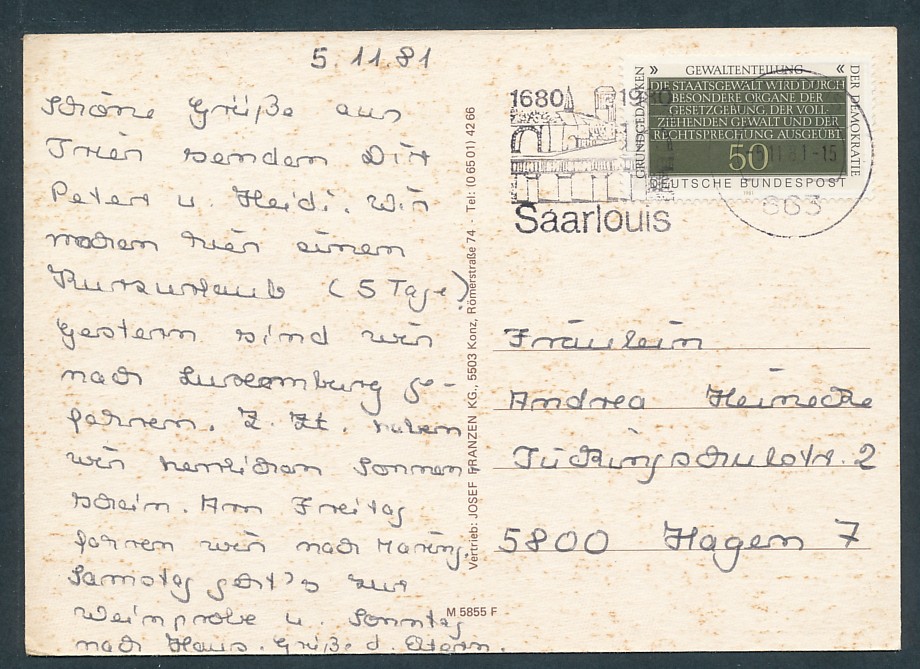 5.11.81
Schöne Grüße aus
Trier senden Dir
Peter u. Heidi. Wir
machen hier einen
Kurzurlaub (5 Tage)!
Gestern sind wir
nach Luxemburg ge-
fahren. Z. Zt. haben
wir herrlichen Sonnen
schein. Am Freitag
fahren wir nach Maring.
Samstag geht's zur
Weinprobe u. Sonntag
nach Haus. Grüße d. Eltern.
Vertrieb: JOSEF FRANZEN KG., 5503 Konz, Römerstraße 74 · Tel: (06501) 4266
M 5855 F
1680 1980
Saarlouis
» GEWALTENTEILUNG «
GRUNDGEDANKEN
DER DEMOKRATIE
DIE STAATSGEWALT WIRD DURCH
BESONDERE ORGANE DER
GESETZGEBUNG, DER VOLL
ZIEHENDEN GEWALT UND DER
RECHTSPRECHUNG AUSGEÜBT
50
DEUTSCHE BUNDESPOST
1981
11.81-15
663
Fräulein
Andrea Heinecke
Tückingschulstr. 2
5800 Hagen 7